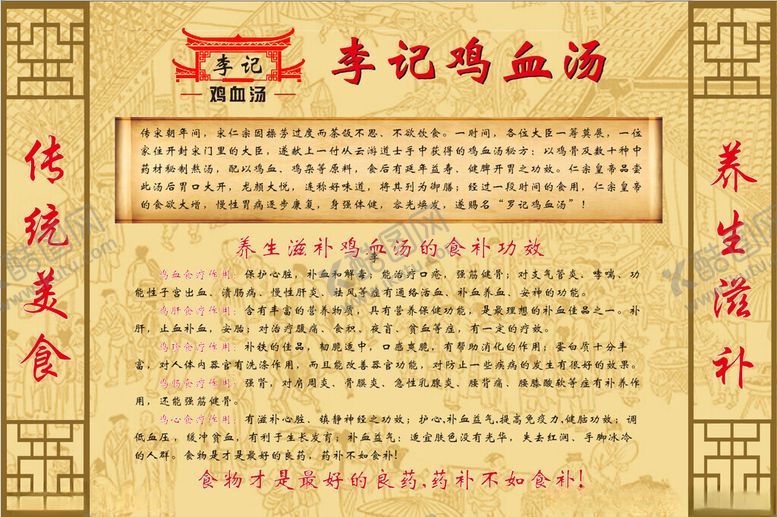 李记
鸡血汤
李记鸡血汤
传统美食
养生滋补
传宋朝年间，宋仁宗因操劳过度而茶饭不思、不欲饮食。一时间，各位大臣一筹莫展，一位
家住开封宋门里的大臣，遂献上一付从云游道士手中获得的鸡血汤秘方：以鸡骨及数十种中
药材秘制熬汤，配以鸡血、鸡杂等原料，食后有延年益寿、健脾开胃之功效。仁宗皇帝品尝
此汤后胃口大开，龙颜大悦，连称好味道，将其列为御膳；经过一段时间的食用，仁宗皇帝
的食欲大增，慢性胃病逐步康复，身强体健，容光焕发，遂赐名“罗记鸡血汤”！
养生滋补鸡血汤的食补功效
李
鸡血食疗作用：保护心脏，补血和解毒；能治疗口疮，强筋健骨；对支气管炎、哮喘、功
能性子宫出血、溃肠病、慢性肝炎、祛风等症有通络活血、补血养血、安神的功能。
鸡肝食疗作用：含有丰富的营养物质，具有营养保健功能，是最理想的补血佳品之一。补
肝，止血补血，安胎；对治疗腹痛、食积，夜盲、贫血等症，有一定的疗效。
鸡珍食疗作用：补铁的佳品，韧脆适中，口感爽脆，有帮助消化的作用；蛋白质十分丰
富，对人体内器官有洗涤作用，而且能改善器官功能，对防止一些疾病的发生有很好的效果。
鸡肠食疗作用：强肾，对肩周炎、骨膜炎、急性乳腺炎、腰背痛、腰膝酸软等症有补养作
用，还能强筋健骨。
鸡心食疗作用：有滋补心脏、镇静神经之功效；护心,补血益气,提高免疫力,健脑功效；调
低血压，缓冲贫血，有利于生长发育；补血益气：适宜肤色没有光华，失去红润、手脚冰冷
的人群。食物是才是最好的良药，药补不如食补！
食物才是最好的良药,药补不如食补！